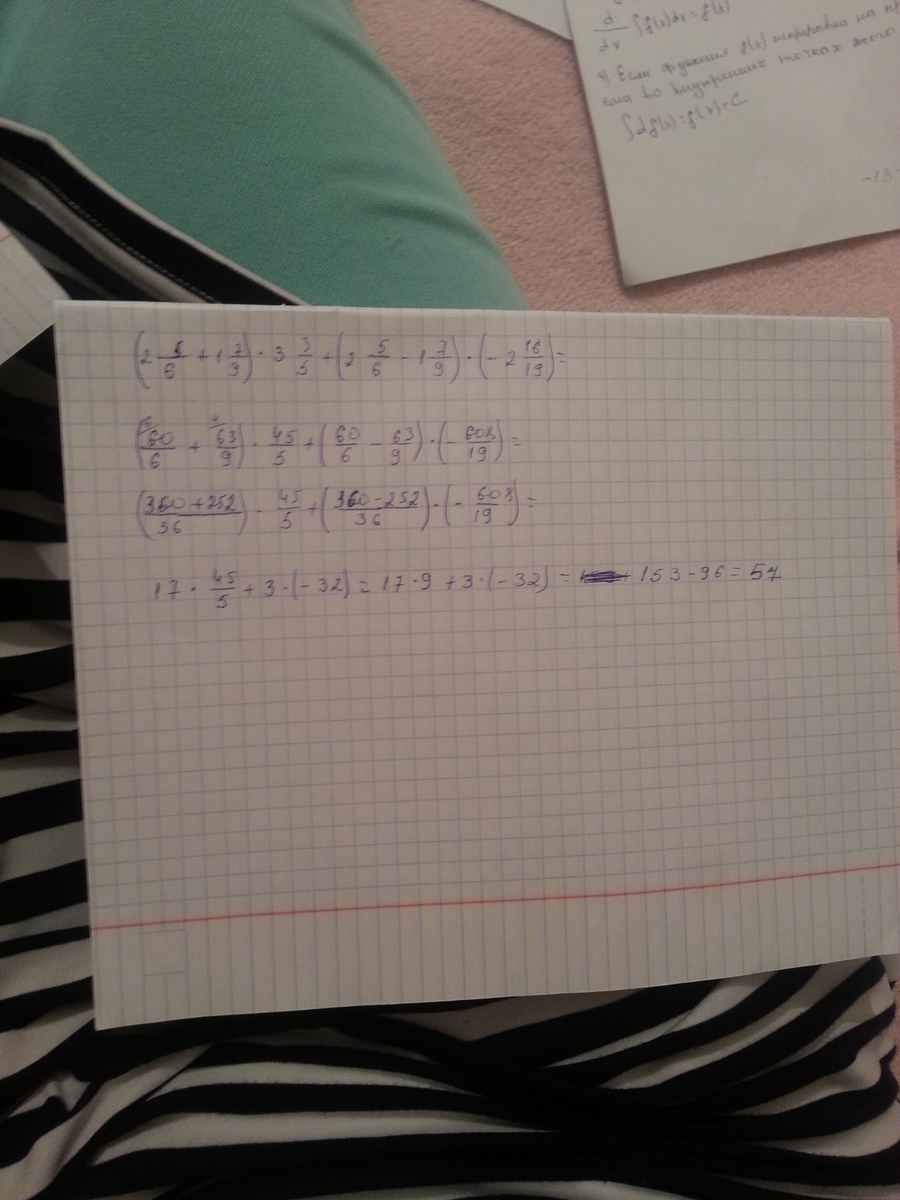 d/dx ∫f(x)dx = f(x)
4) Если функция f(x) непрерывна на пр
ема во внутренних точках этого
∫df(x) = f(x) + C
-13
(2 5/6 + 1 7/9) · 3 3/5 + (2 5/6 - 1 7/9) · (-2 16/19) =
(60/6 + 63/9) · 45/5 + (60/6 - 63/9) · (-608/19) =
((360+252)/36) · 45/5 + ((360-252)/36) · (-608/19) =
17 · 45/5 + 3 · (-32) = 17 · 9 + 3 · (-32) = 153 - 96 = 57